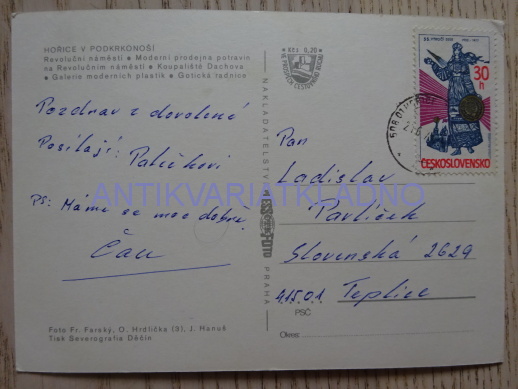 HOŘICE V PODKRKONOŠÍ
Revoluční náměstí • Moderní prodejna potravin
na Revolučním náměstí • Koupaliště Dachova
• Galerie moderních plastik • Gotická radnice
Pozdrav z dovolené
Posílají:
PS: Máme se moc dobře
Čau
Foto Fr. Farský, O. Hrdlička (3), J. Hanuš
Tisk Severografia Děčín
NAKLADATELSTVÍ
PRAHA
30
h
ČESKOSLOVENSKO
Pan
Ladislav
Pavlíček
Slovenská 2629
415 01 Teplice
PSČ
Okres
ANTIKVARIATKLADNO